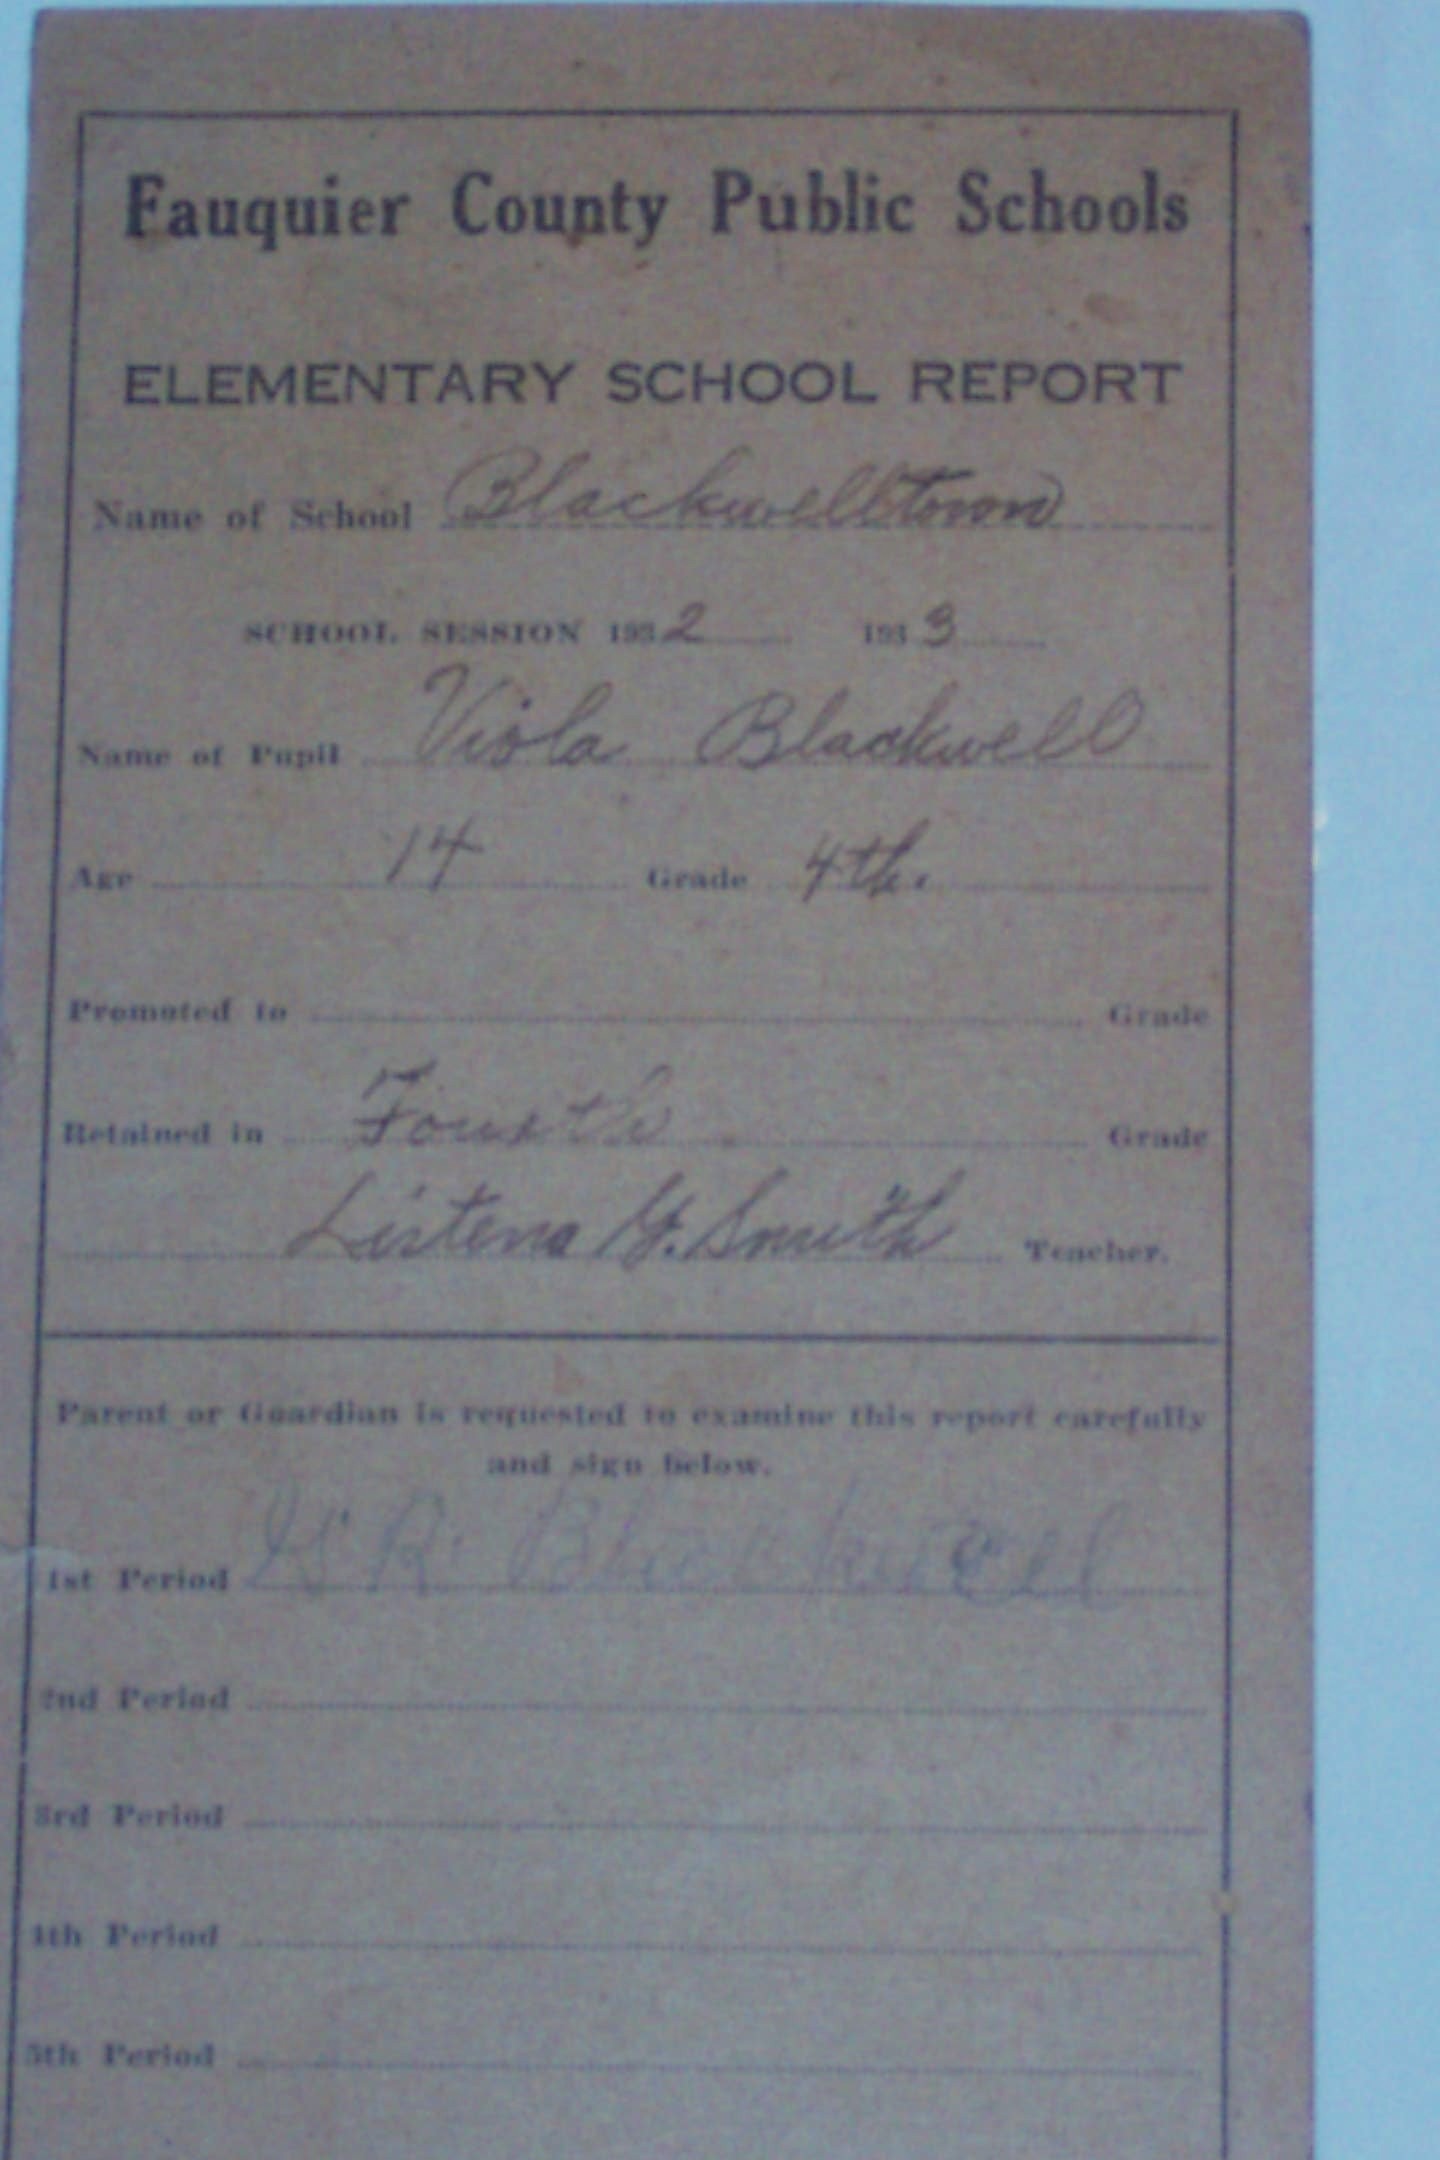 Fauquier County Public Schools
ELEMENTARY SCHOOL REPORT
Name of School Blackwelltown
SCHOOL SESSION 1932 1933
Name of Pupil Viola Blackwell
Age 14 Grade 4th.
Promoted to Grade
Retained in Fourth Grade
G. Smith Teacher.
Parent or Guardian is requested to examine this report carefully
and sign below.
1st Period R. Blackwell
2nd Period
3rd Period
4th Period
5th Period